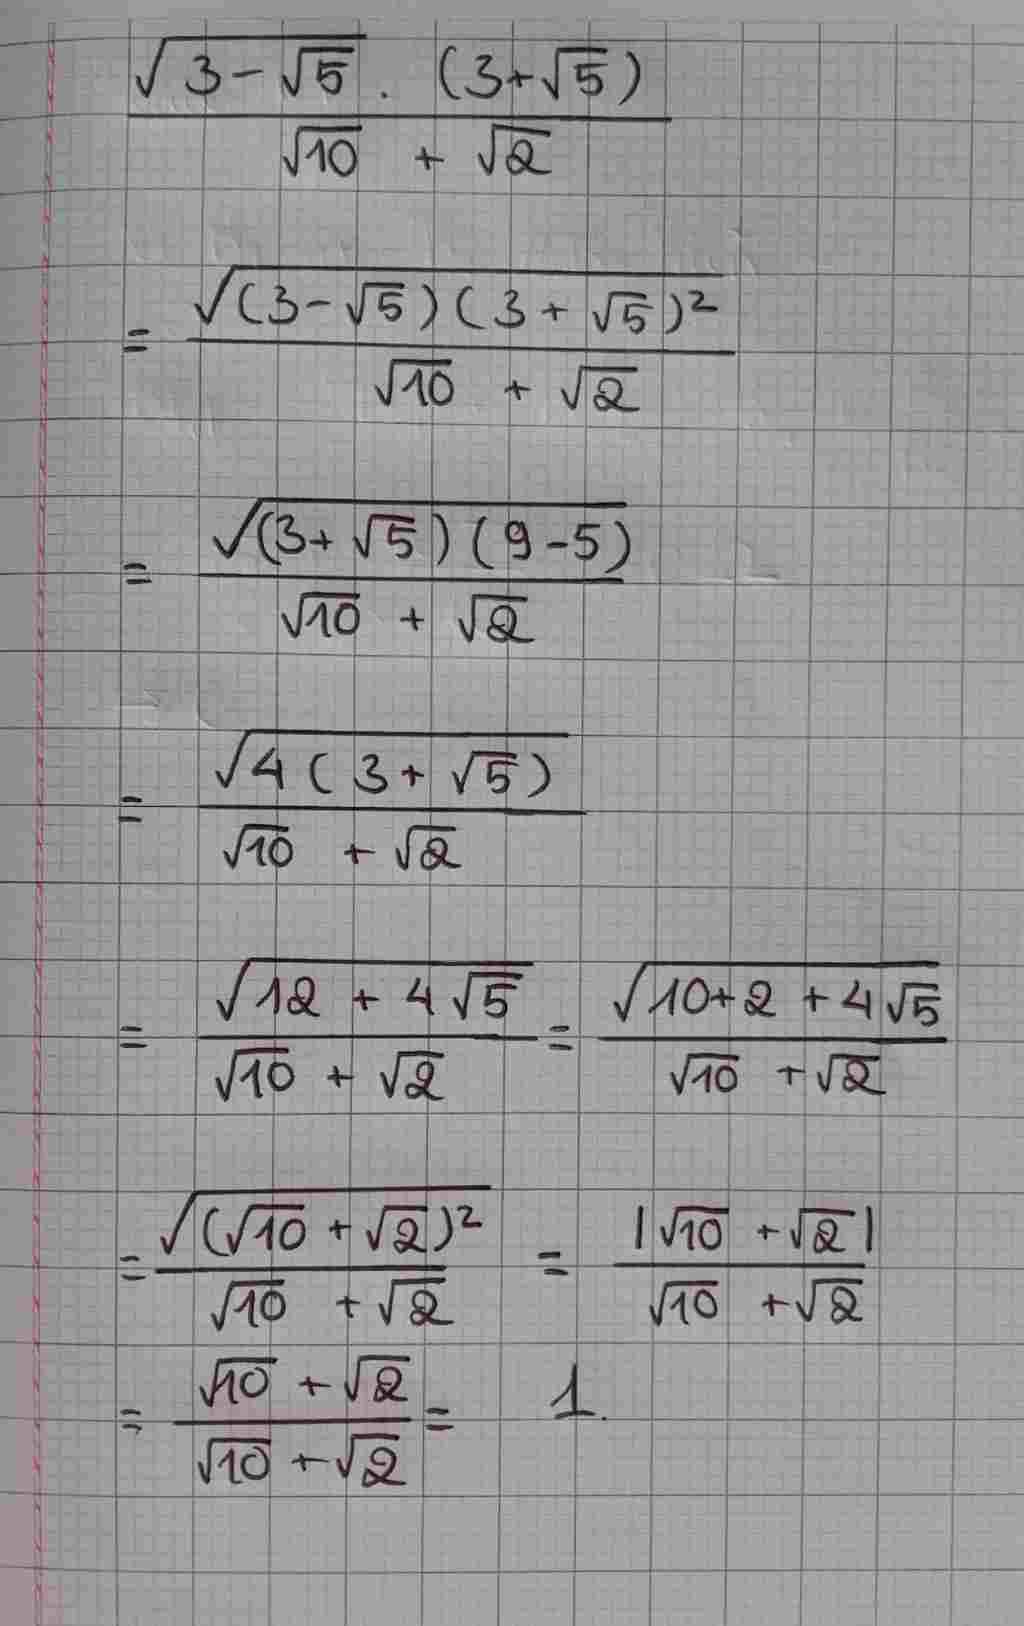 √(3-√5) . (3+√5) / √10 + √2
= √((3-√5)(3+√5)²) / √10 + √2
= √((3+√5)(9-5)) / √10 + √2
= √(4(3+√5)) / √10 + √2
= √(12+4√5) / √10 + √2 = √(10+2+4√5) / √10 + √2
= √((√10+√2)²) / √10 + √2 = |√10 + √2| / √10 + √2
= √10 + √2 / √10 + √2 = 1.